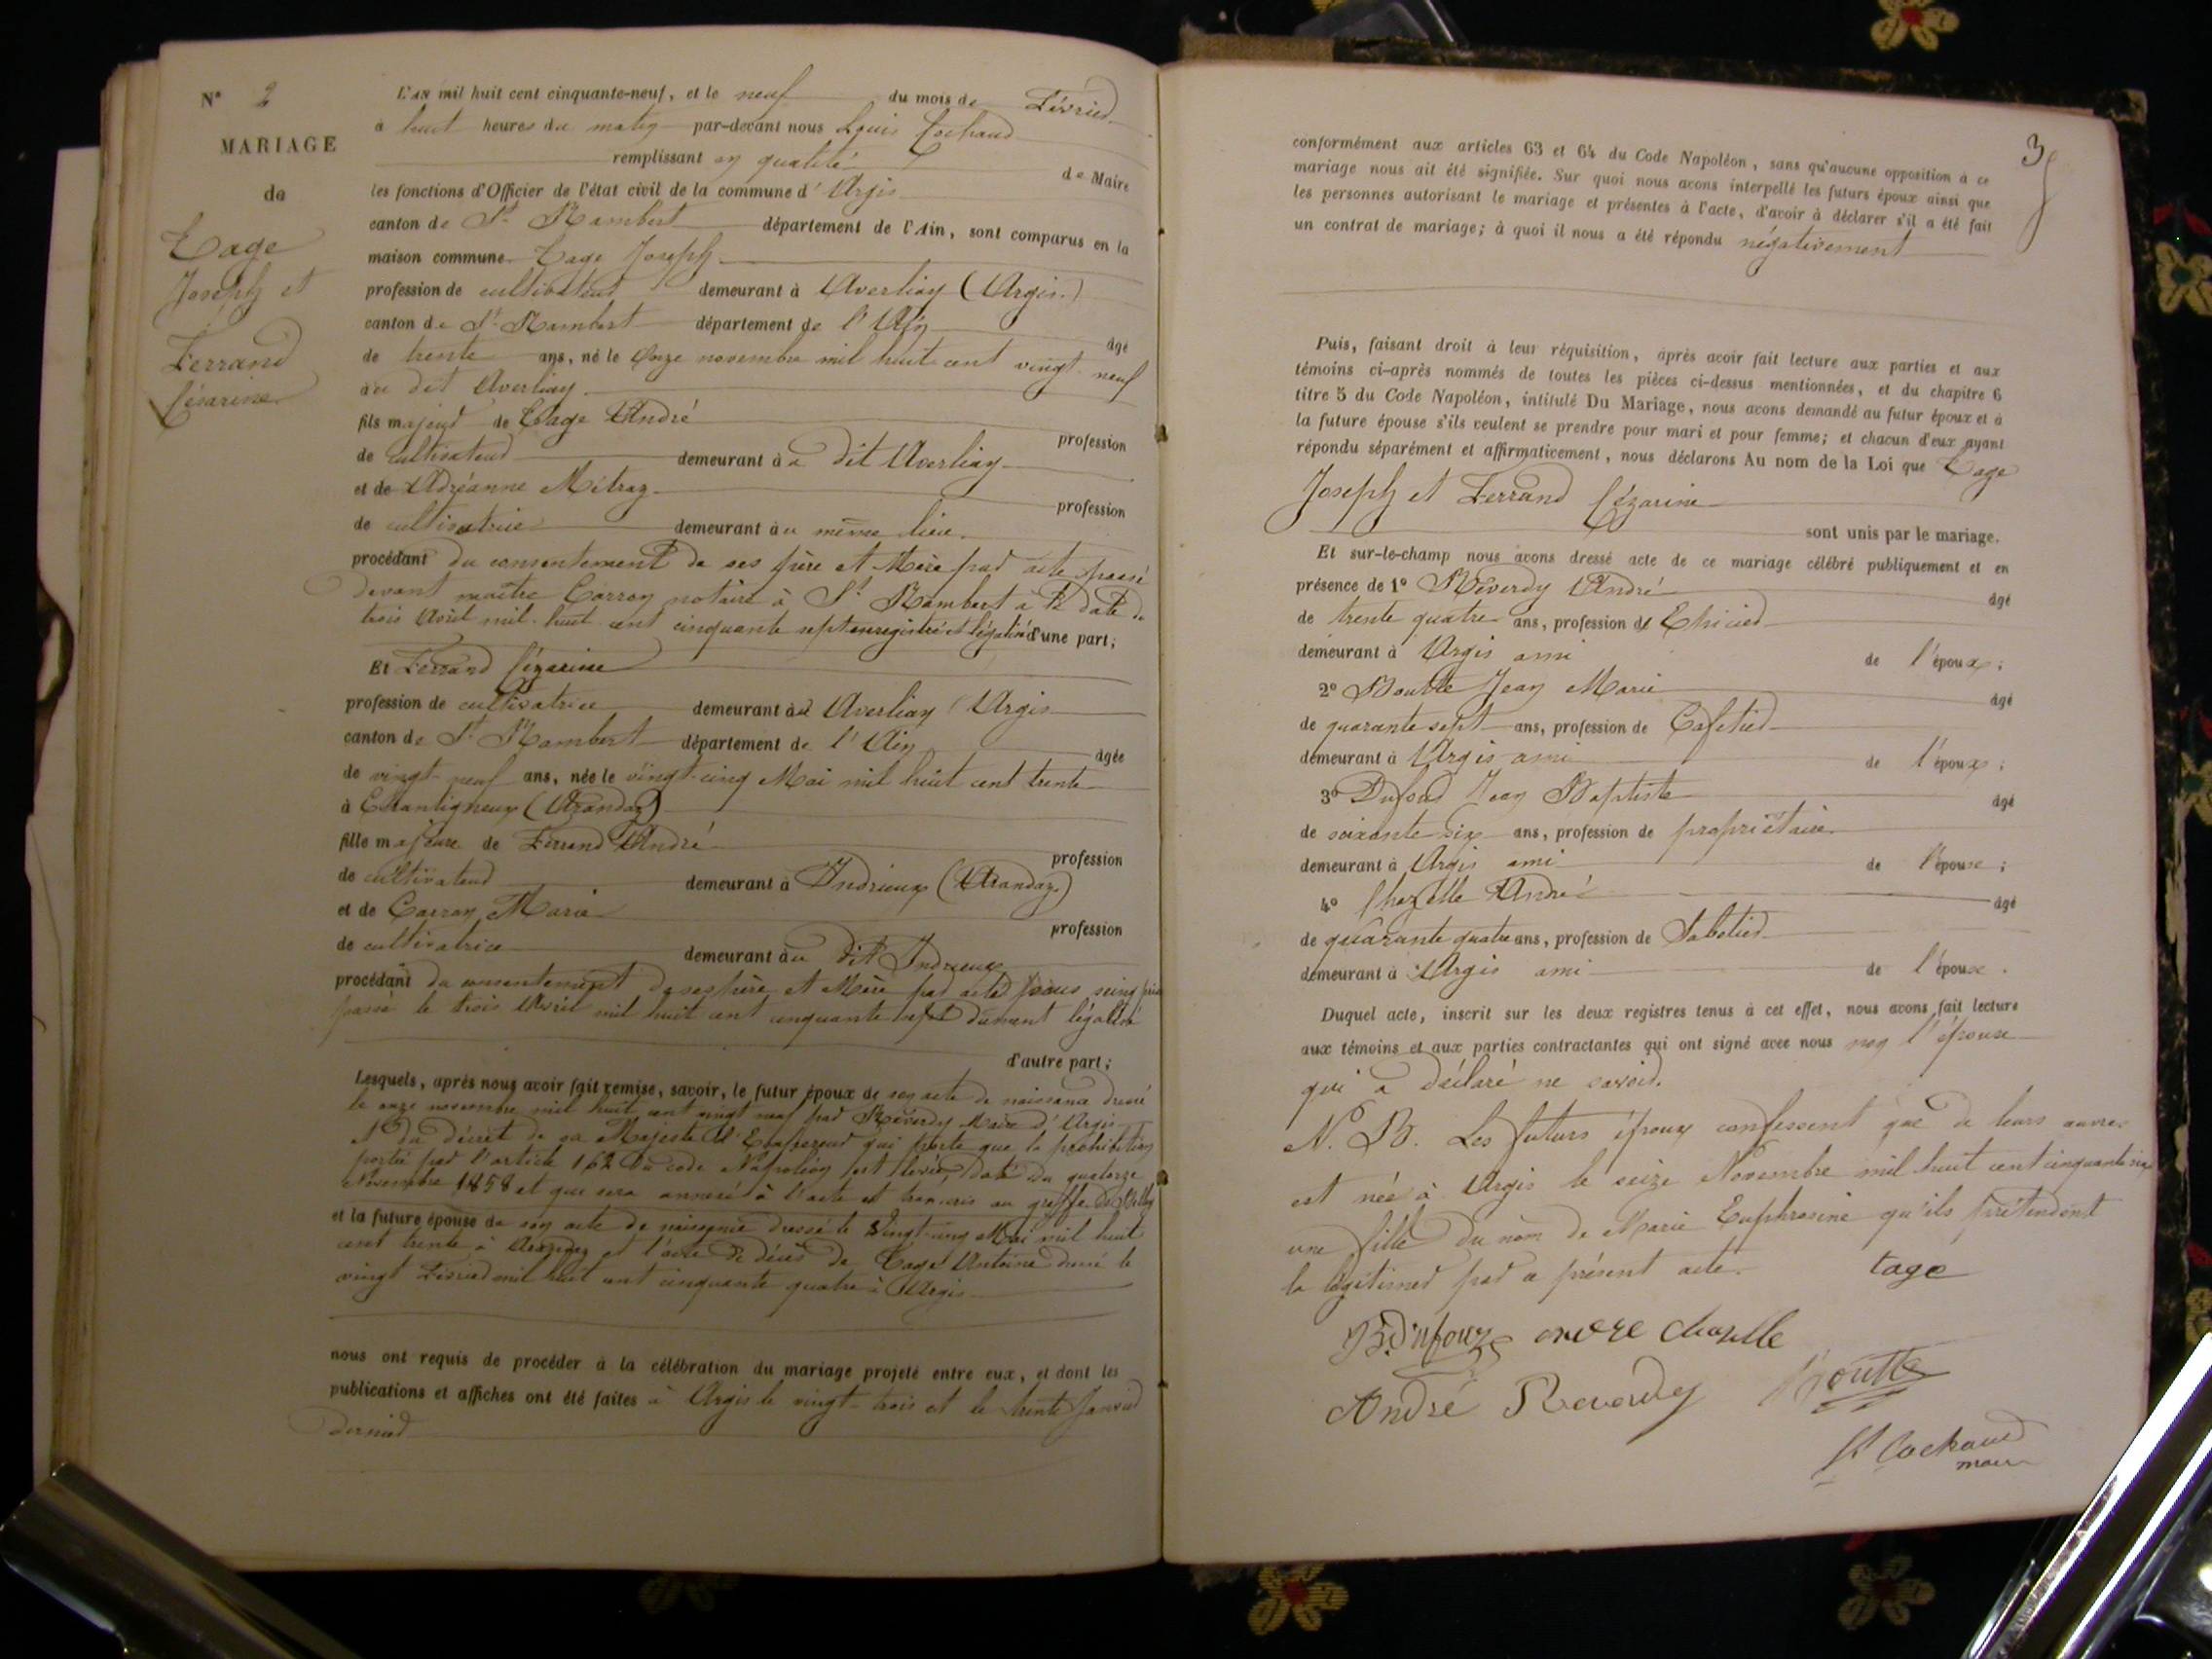 N° 2
MARIAGE
de
Tage
Joseph et
Ferrand
Césarine
L'AN mil huit cent cinquante-neuf, et le neuf du mois de Février
à huit heures du matin par-devant nous Louis Cochaud
remplissant en qualité de Maire
les fonctions d'Officier de l'état civil de la commune d'Argis
canton de St Rambert département de l'Ain, sont comparus en la
maison commune Tage Joseph
profession de cultivateur demeurant à Averliaz (Argis)
canton de St Rambert département de l'Ain âgé
de trente ans, né le Onze novembre mil huit cent vingt-neuf
au dit Averliaz
fils majeur de Tage André profession
de cultivateur demeurant au dit Averliaz
et de Adréanne Métraz profession
de cultivatrice demeurant au même lieu
procédant du consentement de ses père et Mère par acte passé
devant maître Carron notaire à St Rambert à la date du
trois Avril mil huit cent cinquante sept enregistré et légalisé d'une part;
Et Ferrand Cézarine
profession de cultivatrice demeurant à Averliaz Argis
canton de St Rambert département de l'Ain âgée
de vingt-neuf ans, née le vingt-cinq Mai mil huit cent trente
à (Arandaz)
fille majeure de Ferrand André profession
de cultivateur demeurant à Indrieux (Arandaz)
et de Carron Marie profession
de cultivatrice demeurant au dit Indrieux
procédant du consentement de ses père et Mère par acte sous seing privé
passé le trois Avril mil huit cent cinquante sept dûment légalisé
d'autre part;
Lesquels, après nous avoir fait remise, savoir, le futur époux de son acte de naissance dressé
le onze novembre mil huit cent vingt neuf par Réverdy Maire d'Argis
et du décret de sa Majesté l'Empereur qui porte que la prohibition
portée par l'article 162 du code Napoléon est levée, daté du quatorze
Novembre 1858 et que sera annexé à l'acte et transcris au greffe de Belley
et la future épouse de son acte de naissance dressé le vingt-cinq Mai mil huit
cent trente à Arandaz et l'acte de décès de Tage Antoine dressé le
vingt Février mil huit cent cinquante quatre à Argis
nous ont requis de procéder à la célébration du mariage projeté entre eux, et dont les
publications et affiches ont été faites à Argis le vingt-trois et le trente Janvier
dernier
3
conformément aux articles 63 et 64 du Code Napoléon, sans qu'aucune opposition à ce
mariage nous ait été signifiée. Sur quoi nous avons interpellé les futurs époux ainsi que
les personnes autorisant le mariage et présentes à l'acte, d'avoir à déclarer s'il a été fait
un contrat de mariage; à quoi il nous a été répondu négativement
Puis, faisant droit à leur réquisition, après avoir fait lecture aux parties et aux
témoins ci-après nommés de toutes les pièces ci-dessus mentionnées, et du chapitre 6
titre 5 du Code Napoléon, intitulé Du Mariage, nous avons demandé au futur époux et à
la future épouse s'ils veulent se prendre pour mari et pour femme; et chacun d'eux ayant
répondu séparément et affirmativement, nous déclarons Au nom de la Loi que Tage
Joseph et Ferrand Cézarine
sont unis par le mariage.
Et sur-le-champ nous avons dressé acte de ce mariage célébré publiquement et en
présence de 1° Réverdy André âgé
de trente quatre ans, profession d'Epicier
demeurant à Argis ami de l'époux;
2° Boutte Jean Marie âgé
de quarante sept ans, profession de Cafetier
demeurant à Argis ami de l'époux;
3° Dufour Jean Baptiste âgé
de soixante six ans, profession de propriétaire
demeurant à Argis ami de l'épouse;
4° Chazelle André âgé
de quarante quatre ans, profession de Sabotier
demeurant à Argis ami de l'épouse.
Duquel acte, inscrit sur les deux registres tenus à cet effet, nous avons fait lecture
aux témoins et aux parties contractantes qui ont signé avec nous non l'épouse
qui a déclaré ne savoir.
N. B. Les futurs époux confessent que de leurs œuvres
est née à Argis le seize Novembre mil huit cent cinquante six
une fille du nom de Marie Euphrosine qu'ils prétendent
la légitimer par ce présent acte. tage
B. Dufour andre chaselle
André Reverdy Boutte
Ls Cochaud
maire